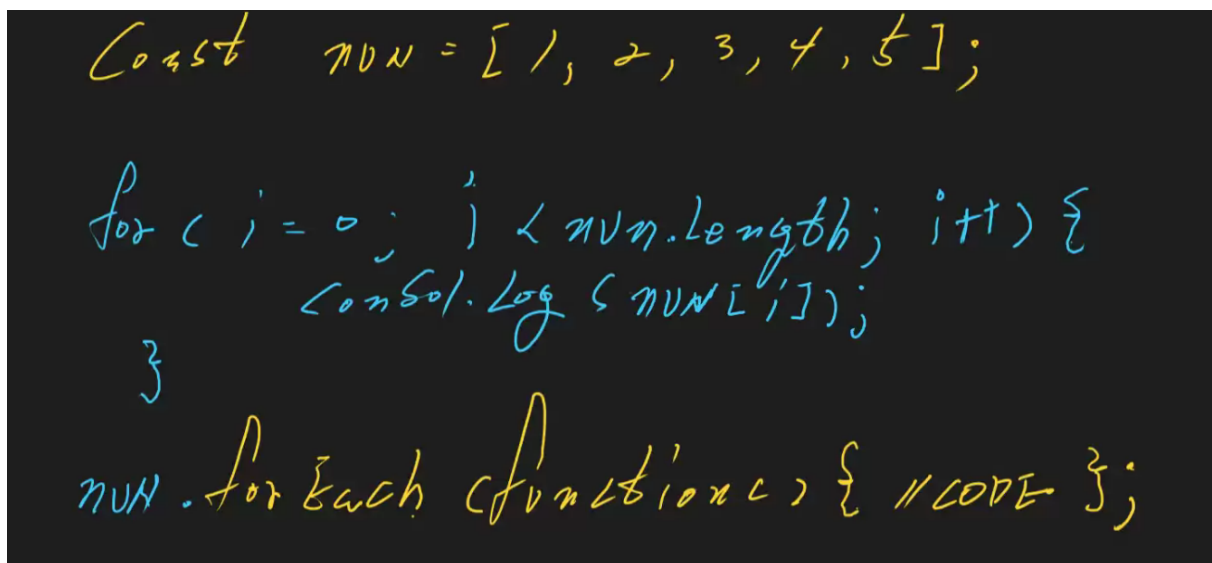 Const nun = [1, 2, 3, 4, 5];
for ( i = 0; i < nun.length; i++) {
Consol.log ( nun[i]);
}
nun.forEach (function() { //CODE };